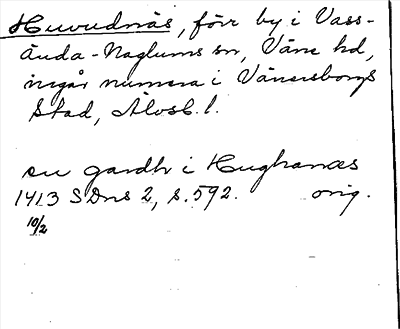 Huvudnäs, förr by i Vass-
ända-Naglums sn, Väne hd,
ingår numera i Vänersborgs
stad, Älvsb. l.
en gardh i Hughanæs
1413 SDns 2, s. 592. orig.
10/2